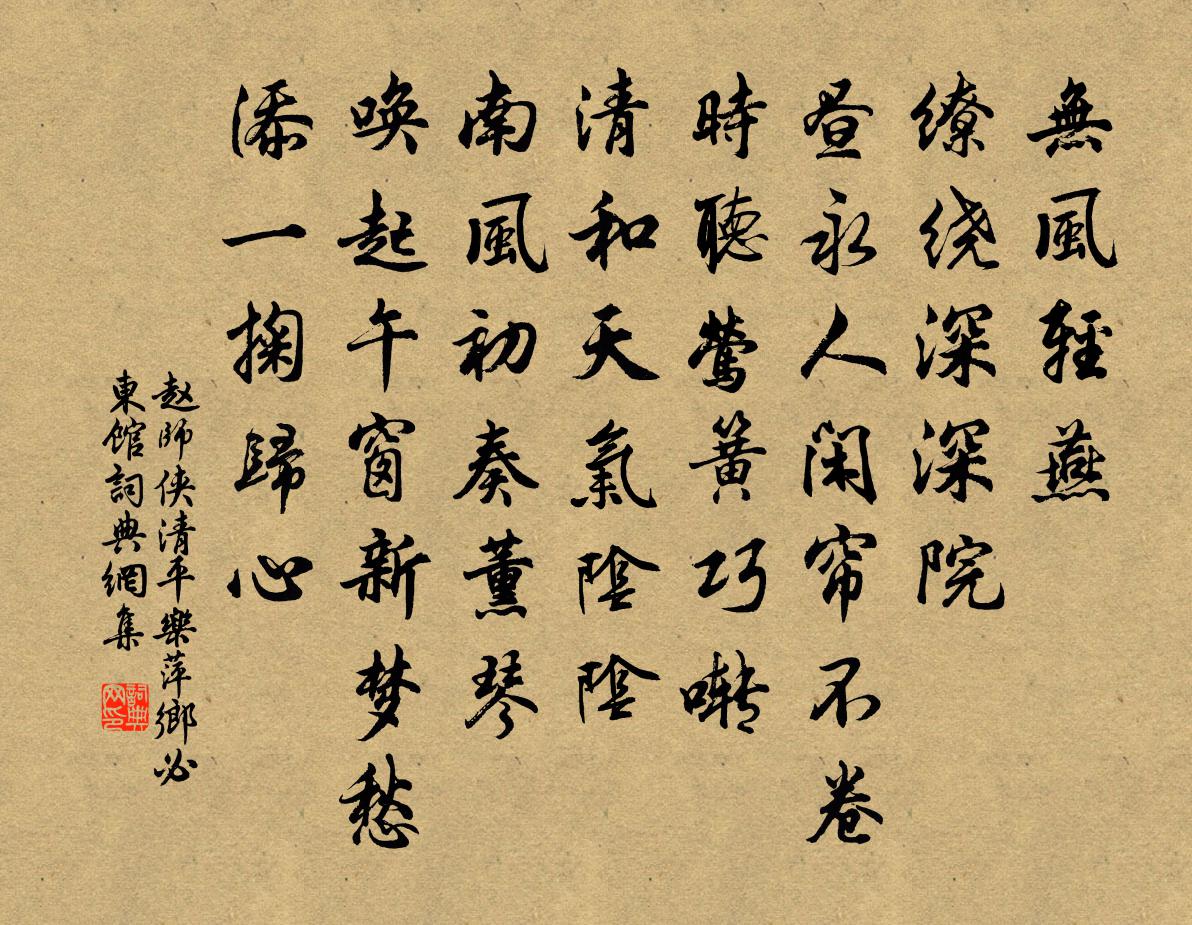 無風輕燕
繚绕深深院
昼永人闲帘不卷
時聽鶯簧巧啭
清和天氣陰陰
南風初奏薰琴
唤起午窗新梦愁
添一掬歸心
赵師侠清平樂萍鄉必
東館詞典網集
詞典
网印